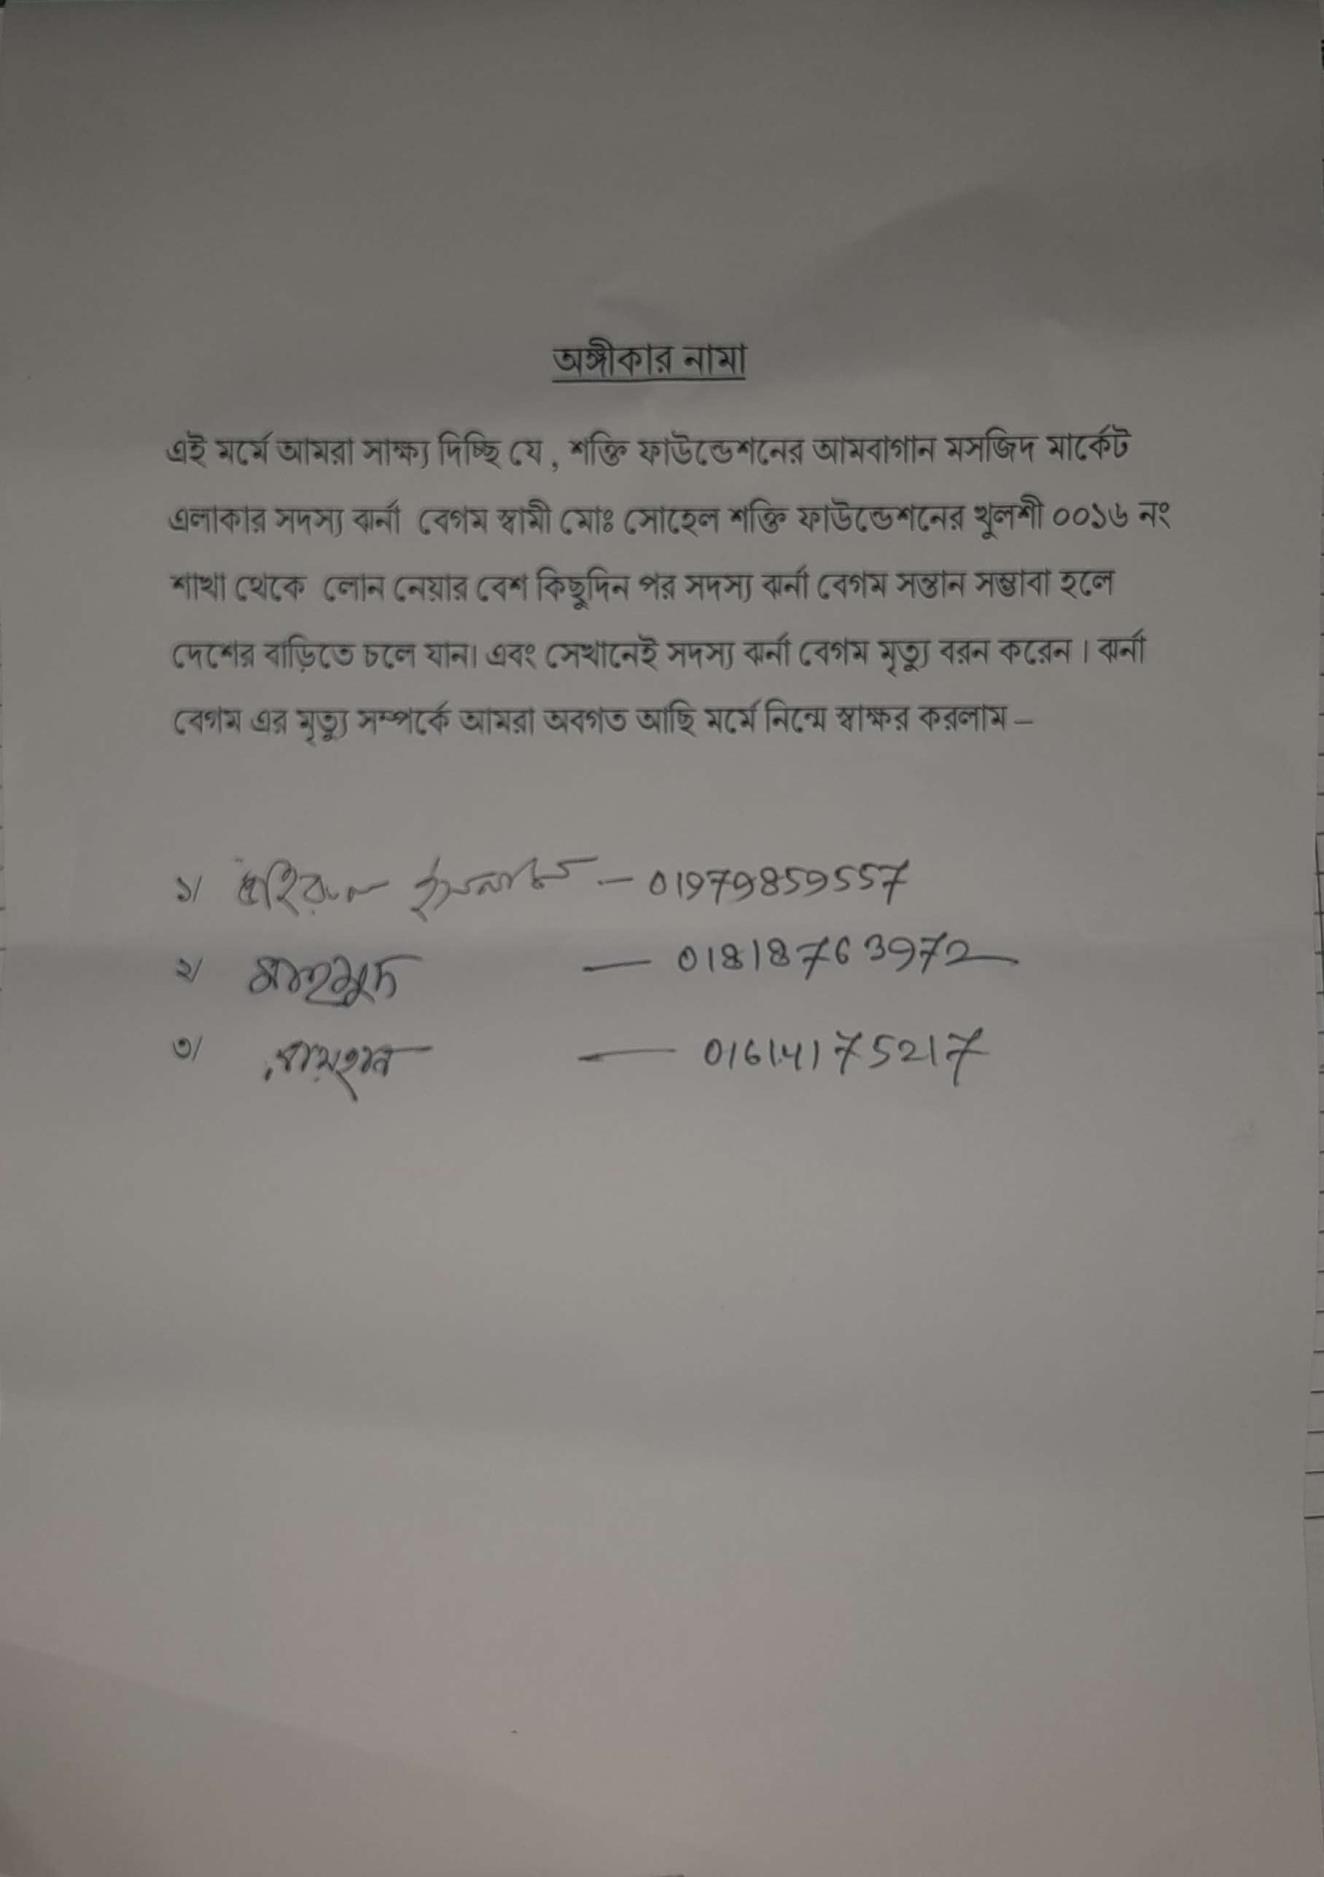 অঙ্গীকার নামা
এই মর্মে আমরা সাক্ষ্য দিচ্ছি যে , শক্তি ফাউন্ডেশনের আমবাগান মসজিদ মার্কেট
এলাকার সদস্য ঝর্না বেগম স্বামী মোঃ সোহেল শক্তি ফাউন্ডেশনের খুলশী ০০১৬ নং
শাখা থেকে লোন নেয়ার বেশ কিছুদিন পর সদস্য ঝর্না বেগম সন্তান সম্ভাবা হলে
দেশের বাড়িতে চলে যান। এবং সেখানেই সদস্য ঝর্না বেগম মৃত্যু বরন করেন । ঝর্না
বেগম এর মৃত্যু সম্পর্কে আমরা অবগত আছি মর্মে নিন্মে স্বাক্ষর করলাম –
১/ ইসলাম – 01979859557
২/ মাহমুদ — 01818763972
৩/ — 01614175217